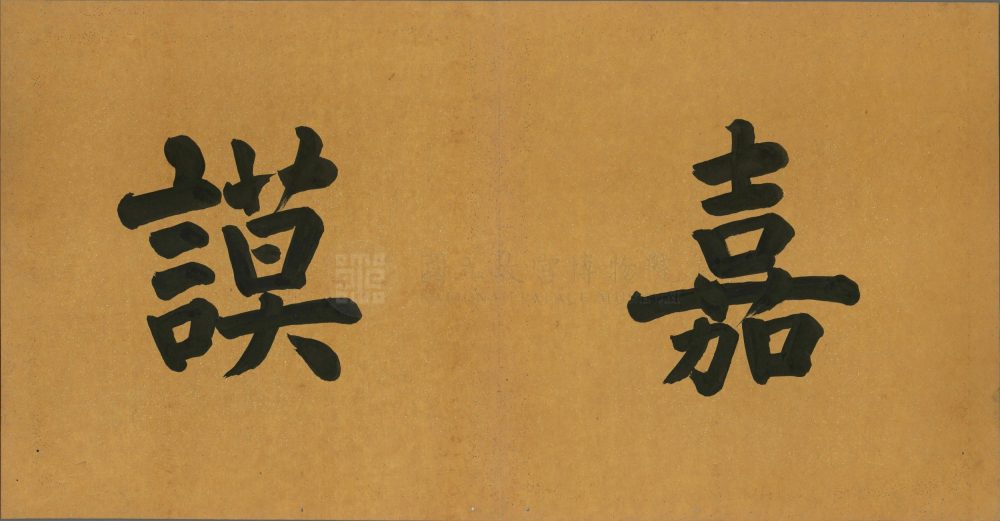 嘉謨
國立故宮博物院
NATIONAL PALACE MUSEUM